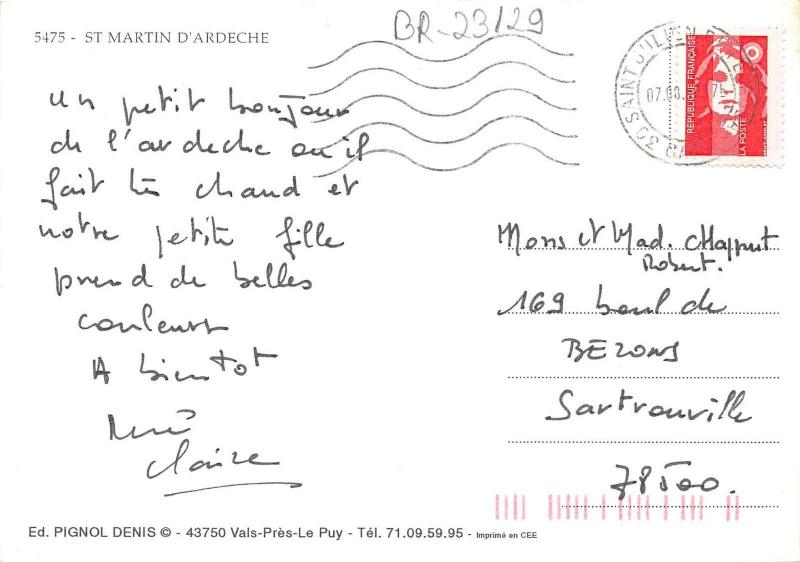 BR-23/29
5475 - ST MARTIN D'ARDECHE
un petit bonjour
de l'ardeche ou il
fait très chaud et
notre petite fille
prend de belles
couleurs
A bientot
René
Claire
RÉPUBLIQUE FRANÇAISE
LA POSTE
30 SAINT JULIEN
07.08.
Mons et Mad. Chapput
Robert.
169 boul de
BEZONS
Sartrouville
78500.
Ed. PIGNOL DENIS © - 43750 Vals-Près-Le Puy - Tél. 71.09.59.95 - Imprimé en CEE